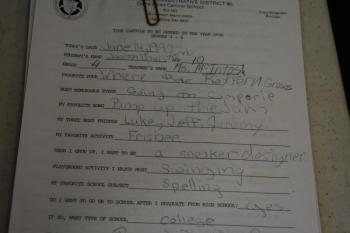 ADMINISTRATIVE DISTRICT #3
Central School
TIME CAPSULE TO BE OPENED IN THE YEAR 2000
GRADES 1 - 4
TODAY'S DATE June 14, 1990
STUDENT'S NAME 10
GRADE 4 TEACHER'S NAME Ms. McIntosh
FAVORITE BOOK Where The Red Fern Grows
MOST MEMORABLE EVENT Going on
MY FAVORITE SONG Pump up the Jam
MY THREE BEST FRIENDS Luke, Jeff, Jeremy
MY FAVORITE ACTIVITY Frisbee
WHEN I GROW UP, I WANT TO BE a sneaker designer
PLAYGROUND ACTIVITY I ENJOY MOST Swinging
MY FAVORITE SCHOOL SUBJECT Spelling
DO I WANT TO GO ON TO SCHOOL AFTER I GRADUATE FROM HIGH SCHOOL? yes
IF SO, WHAT TYPE OF SCHOOL college